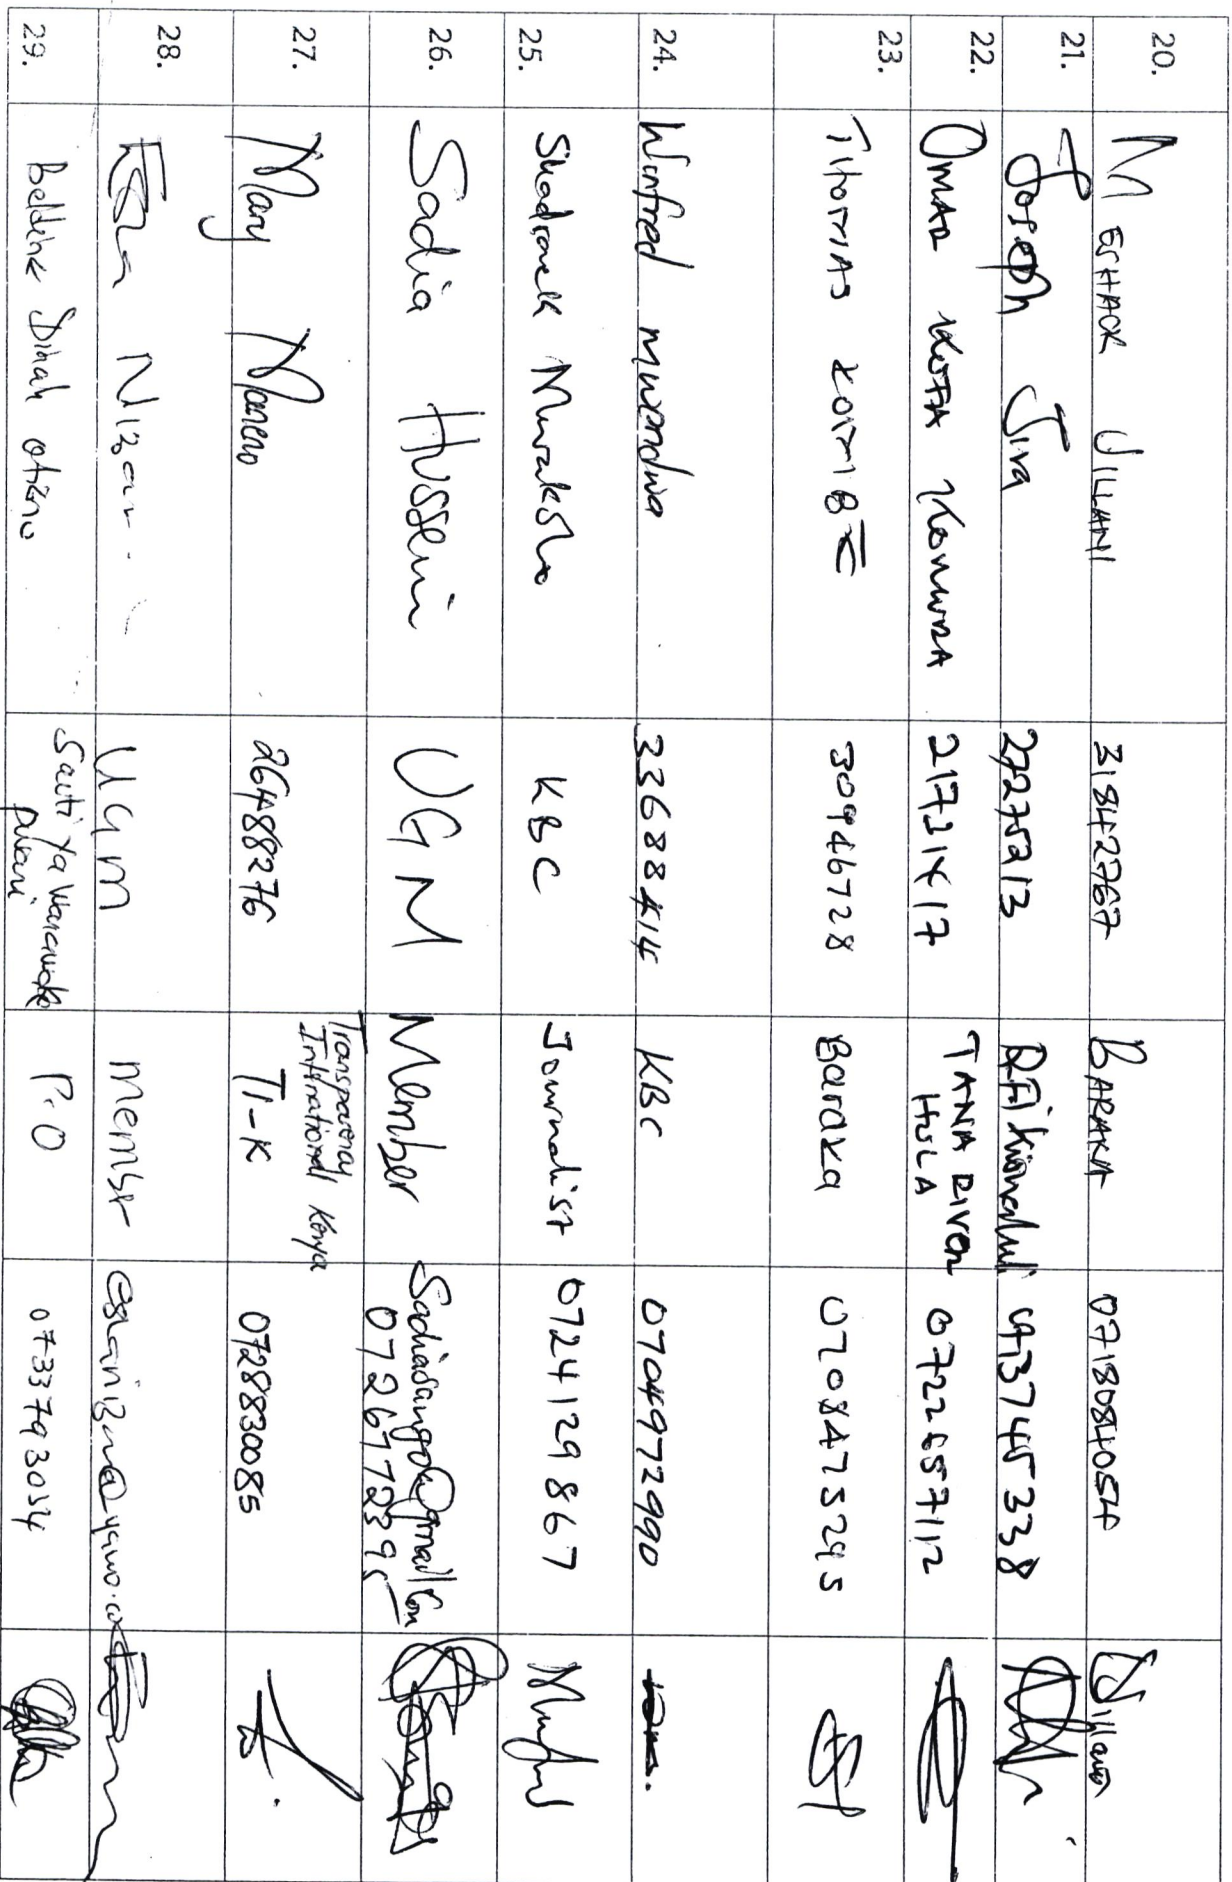 20. MESHACK JILLANI 31842767 BARAKA 0718084054 Jillani
21. Joseph Jiva 27275213
22. OMAR KOFA 21731417 TANA RIVER HOLA 0722657112
23. THOMAS KOITMBE 30946728 Baraka 0708475295
24. Winfred Mwendwa 33688414 KBC 0704972990
25. Shadrack Mwaksho KBC Journalist 0724129867
26. Sadia Hussein UGM Member Sadiasango@gmail.com
0726772395
27. Mary Maneno 26488276 Transparency International Kenya
TI-K 0728830085
28. Esha Nizar UGM Member eshanizma@yahoo.com
29. Beldine Dinah Otieno Sauti Ya Wanawake Pwani P.O 0733793034